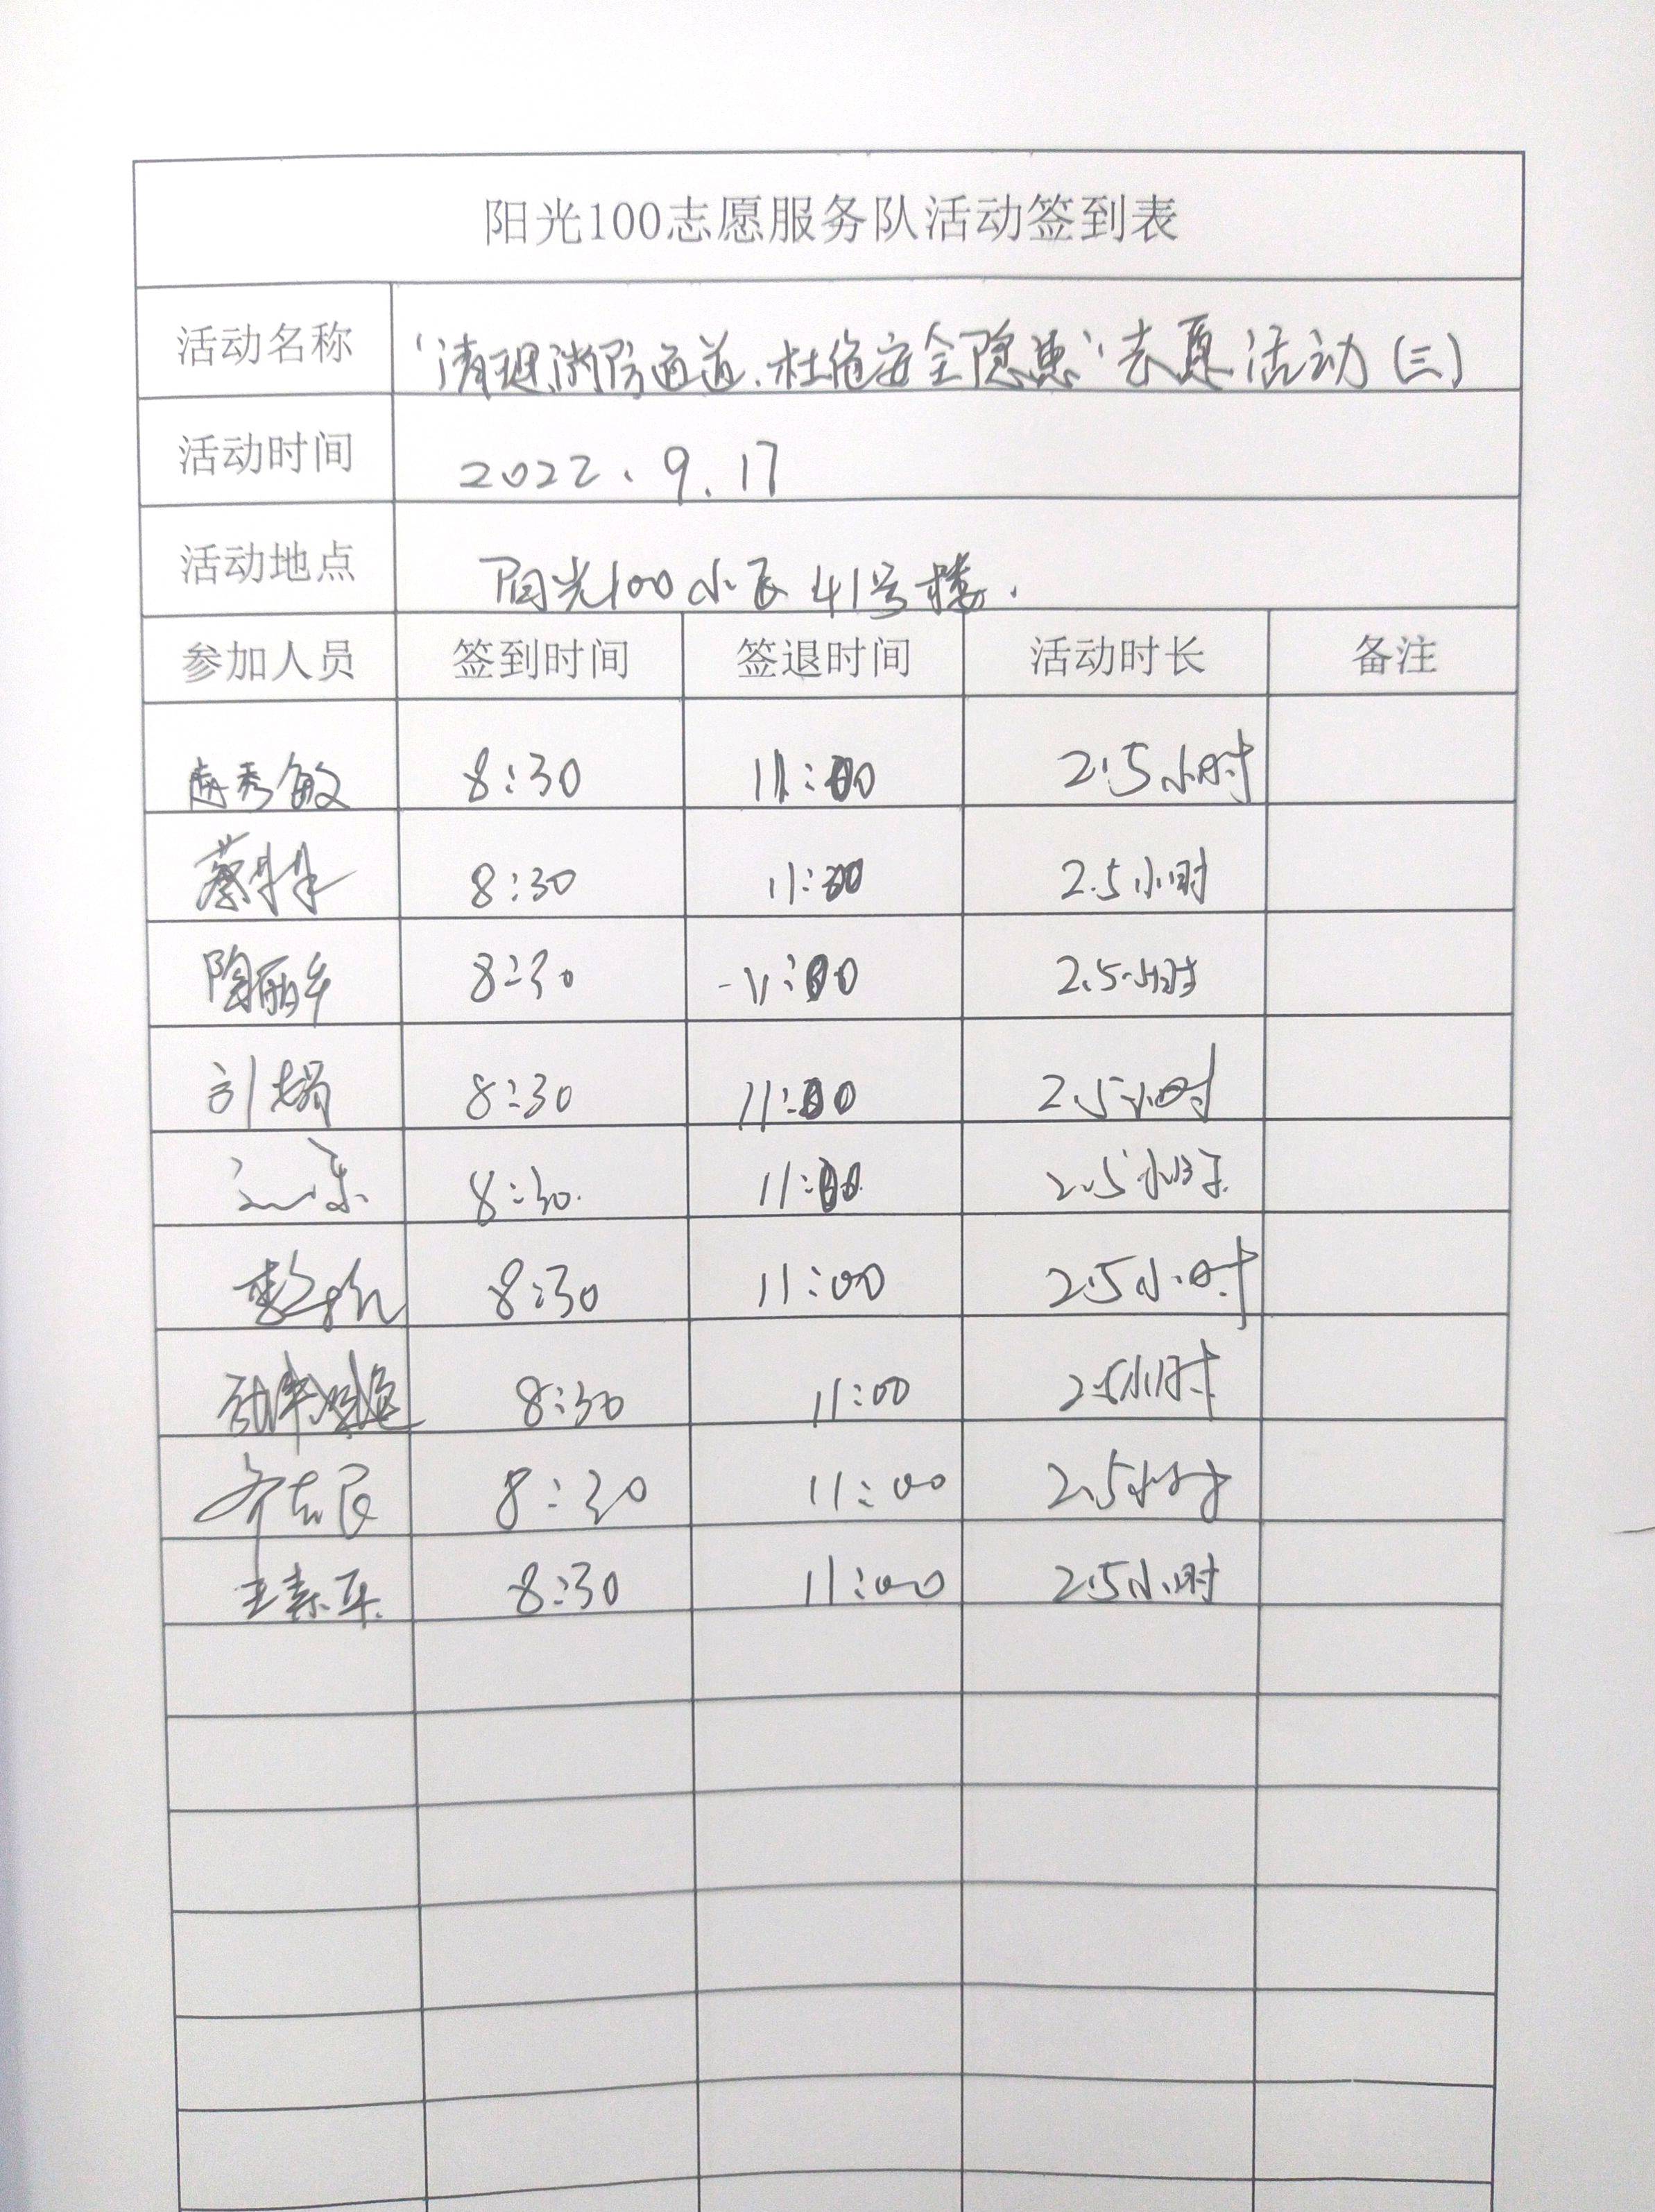 阳光100志愿服务队活动签到表
活动名称 “清理消防通道、杜绝安全隐患”志愿活动(三)
活动时间 2022.9.17
活动地点 阳光100小区41号楼.
参加人员 签到时间 签退时间 活动时长 备注
赵秀敏 8:30 11:00 2.5小时
蔡 8:30 11:00 2.5小时
陶丽 8:30 11:00 2.5小时
8:30 11:00 2.5小时
8:30 11:00 2.5小时
8:30 11:00 2.5小时
8:30 11:00 2.5小时
齐志民 8:30 11:00 2.5小时
王素 8:30 11:00 2.5小时